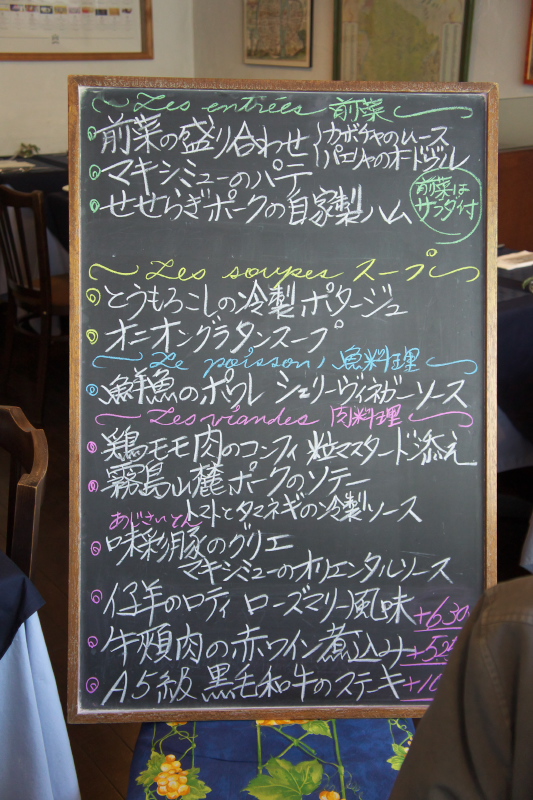 Les entrées 前菜
前菜の盛り合わせ カボチャのムース
パエリャのオードヴル
マキシミューのパテ
せせらぎポークの自家製ハム
前菜は
サラダ付
Les soupes スープ
とうもろこしの冷製ポタージュ
オニオングラタンスープ
Le poisson 魚料理
鮮魚のポワレ シェリーヴィネガーソース
Les viandes 肉料理
鶏モモ肉のコンフィ 粒マスタード添え
霧島山麓ポークのソテー
トマトとタマネギの冷製ソース
あじさいとん
味彩豚のグリエ
マキシミューのオリエンタルソース
仔羊のロティ ローズマリー風味 +630
牛頬肉の赤ワイン煮込み
A5級 黒毛和牛のステーキ